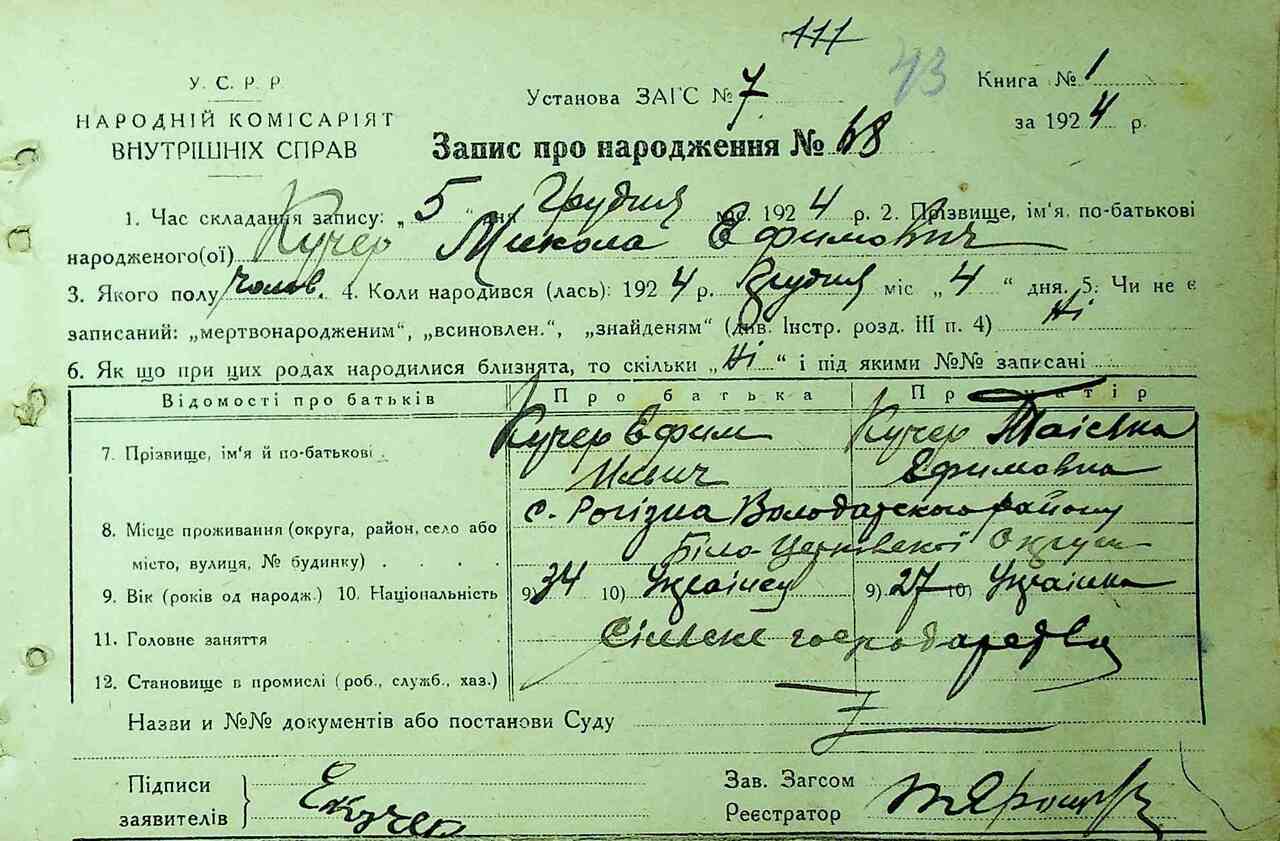 111
У. С. Р. Р
Установа ЗАГС № 7
43
Книга № 1
НАРОДНІЙ КОМІСАРІЯТ
за 1924 р.
ВНУТРІШНІХ СПРАВ
Запис про народження № 68
1. Час складання запису: „ 5 “ дня Грудня міс. 1924 р. 2. Прізвище, ім'я, по-батькові
народженого(ої) Кучер Микола Ефимович
3. Якого полу чолов. 4. Коли народився (лась): 1924 р. Грудня міс „ 4 “ дня. 5. Чи не є
записаний: „мертвонародженим“, „всиновлен.“, „знайденям“ (див. Інстр. розд. III п. 4) Ні
6. Як що при цих родах народилися близнята, то скільки „ Ні “ і під якими №№ записані
Відомості про батьків Про батька Про матір
7. Прізвище, ім'я й по-батькові Кучер Ефим Кучер
Ильич Ефимовна
8. Місце проживання (округа, район, село або с. Рогізна Володарского району
місто, вулиця, № будинку) Біло-Церківської Округи
9. Вік (років од народж.) 10. Національність 9) 34 10) Українец 9) 27 10) Українка
11. Головне заняття Сільске господарство
12. Становище в промислі (роб., служб., хаз.)
Назви и №№ документів або постанови Суду
Підписи
заявителів
Е Кучер
Зав. Загсом
Реєстратор